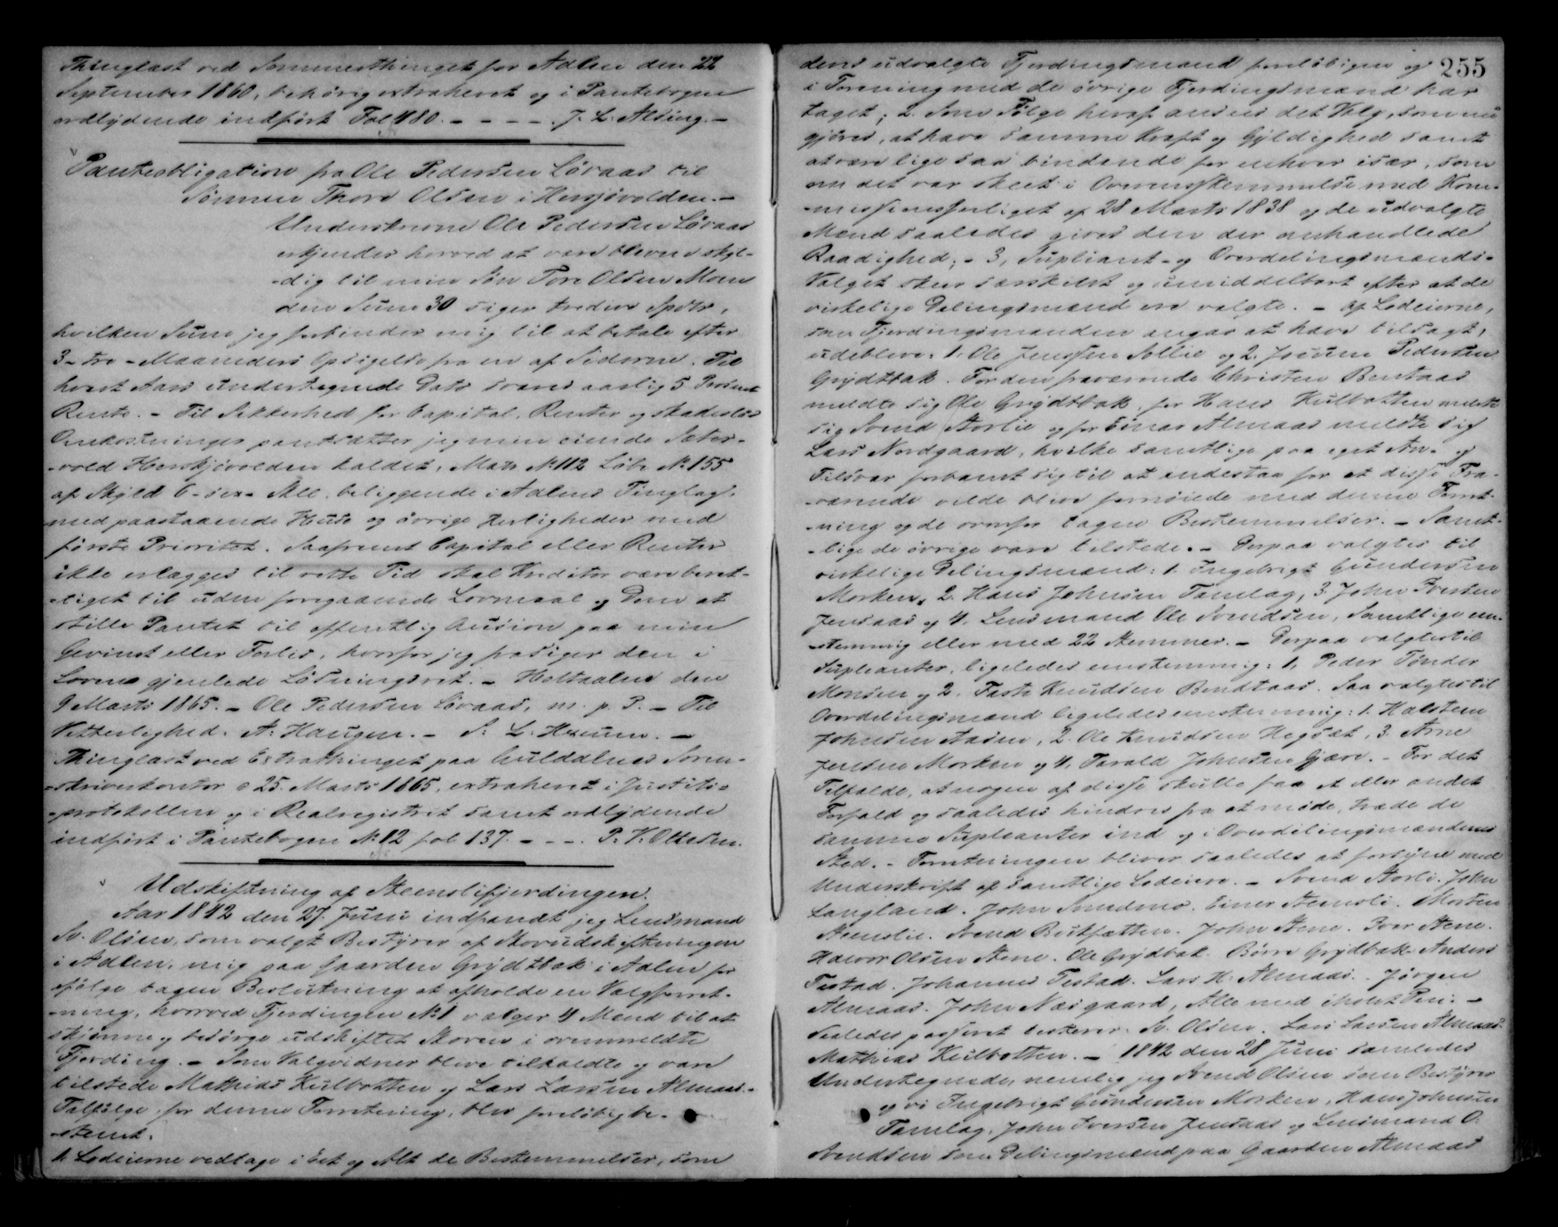 Thinglæst ved Sommerthinget for Aalen den 22
September 1860, behörig extraheret og i Pantebogen
ordlydende indført Fol 480. - - - - J. L. Alsing. -
Panteobligation fra Ole Pedersen Løvaas til
Sønnen Thore Olsen i Hersjøvolden. -
Underskrevne Ole Pedersen Løvaas
erkjender herved at være bleven skyl-
dig til min Søn Tore Olsen
den Sum 30 siger tredive Spdlr,
hvilken Sum jeg forbinder mig til at betale efter
3 - tre - Maaneders Opsigelse fra en af Siderne. Til
hvert Aars undertegnede Dato svares aarlig 5 Procent
Rente. - Til Sikkerhed for Capital, Renter og skadesløs
Omkostninger pantsætter jeg min eiende Sæter-
vold Herskjøvolden kaldet, Matr. No 112 Løb. No 155
af Skyld 6 - sex - Skl. beliggende i Aalens Tinglag,
med paastaaende Huse og øvrige Herligheder med
første Prioritet. Saafremt Capital eller Renter
ikke erlægges til rette Tid skal Kreditor være beret-
tiget til uden foregaaende Lovmaal og Dom at
stille Pantet til offentlig Auction paa min
Gevinst eller Forlis, hvorfor jeg frasiger den i
Loven gjemlede Løsningsret. - Holtaalen den
9 Marts 1865. - Ole Pedersen Løvaas, m. p. P. - Til
Vitterlighed. A. Haugen. - S. L. -
Thinglæst ved Extrathinget paa Guldalens Soren-
skriverkontor d 25 Marts 1865, extraheret i Justits-
protokollen og i Realregistret samt ordlydende
indført i Pantebogen No 12 fol 137. - - - . P. K. Ottesen.
Udskiftning af Steenslifjerdingen.
Aar 1842 den 27 Juni indfandt jeg Lensmand
Sv. Olsen, som valgt Bestyrer af Skovudskiftningen
i Aalen, mig paa Gaarden Grydtbak i Aalen for
ifølge tagen Beslutning at afholde en Valgforret-
ning, hvorved Fjerdingen No 1 vælger 4 Mænd til at
skjønne og besørge udskiftet Skoven i ovenmeldte
Fjerding. - Som Valgvidner blive tilkaldte og vare
tilstede Mathias Kulbotten og Lars Larsen Almaas. -
Talfølge for denne Forretning, blev foreløbig be-
stemt.
1. Lodeierne vedtage i Eet og Alt de Bestemmelser, som
255
deres udvalgte Fjerdingsmænd foreløbigen og
i Forening med de øvrige Fjerdingsmænd har
taget; 2. Som Følge heraf ansees det Valg, som nu
gjøres, at have samme Kraft og Gyldighed samt
at være lige saa bindende for enhver især, som
om det var skeet i Overensstemmelse med Kom-
missionsforliget af 28 Marts 1838 og de udvalgte
Mænd saaledes gives den der omhandlede
Raadighed; - 3, Supliant- og Overdelingsmænds-
Valget skeer særskilt og umiddelbart efter at de
virkelige Delingsmænd ere valgte. - Af Lodeierne,
som Fjerdingsmanden angav at have tilsagt,
udebleve: 1. Ole Jenssen Sollie og 2. Joen Pedersen
Grydtbak. For den fraværende Christen Bentaas
meldte sig Ole Grydtbak, for Hans Kulbotten meldte
sig Svend Storlie og for Einar Almaas meldte sig
Lars Nordgaard, hvilke samtlige paa eget An- og
Tilsvar forbandt sig til at indestaa for at disse Fra-
værende vilde blive fornøiede med denne Forret-
ning og de ovenfor tagne Bestemmelser. - Samt-
lige de øvrige vare tilstede. - Derpaa valgtes til
virkelige Delingsmænd: 1. Ingebrigt Gundersen
Morken, 2. Hans Johnsen Tamlag, 3. John Iversen
Jensaas og 4. Lensmand Ole Svendsen, Samtlige een-
stemmig eller med 22 Stemmer. - Derpaa valgtes til
Supleanter, ligeledes eenstemmig: 1. Peder Tønder
Monsen og 2. Knudsen Bendtaas. Saa valgtes til
Overdelingsmænd ligeledes eenstemmig: 1. Halsten
Johnsen Aasen, 2. Ole Knudsen Hegset, 3. Arne
Jensen Morken og 4. Tarald Johnsen Gjære. - For det
Tilfælde, at nogen af disse skulle faa et eller andet
Forfald og saaledes hindres fra at møde, træde de
samme Supleanter ind og i Overdelingsmændens
Sted. - Forretningen bliver saaledes at forsyne med
Underskrift af samtlige Lodeiere. - Svend Storli. John
Langland. John Einar Steensli. Morten
Steenslie. Svend Bukfætten. John Stene. Iver Stene.
Halvor Olsen Stene. Ole Grydbak. Børre Grydbak. Anders
Testad. Johannes Testad. Lars H. Almaas. Jørgen
Almaas. John Næsgaard, Alle med iholdt Pen. -
Saaledes passeret testerer. Sv. Olsen. Lars Larsen Almaas.
Mathias Kulbotten. - 1842 den 28 Juni samledes
Undertegnede, nemlig jeg Svend Olsen som Bestyrer
og vi Ingebrigt Gundersen Morken, Hans Johnsen
Tamlag, John Iversen Jensaas og Lensmand O.
Svendsen som Delingsmænd paa Gaarden Almaas